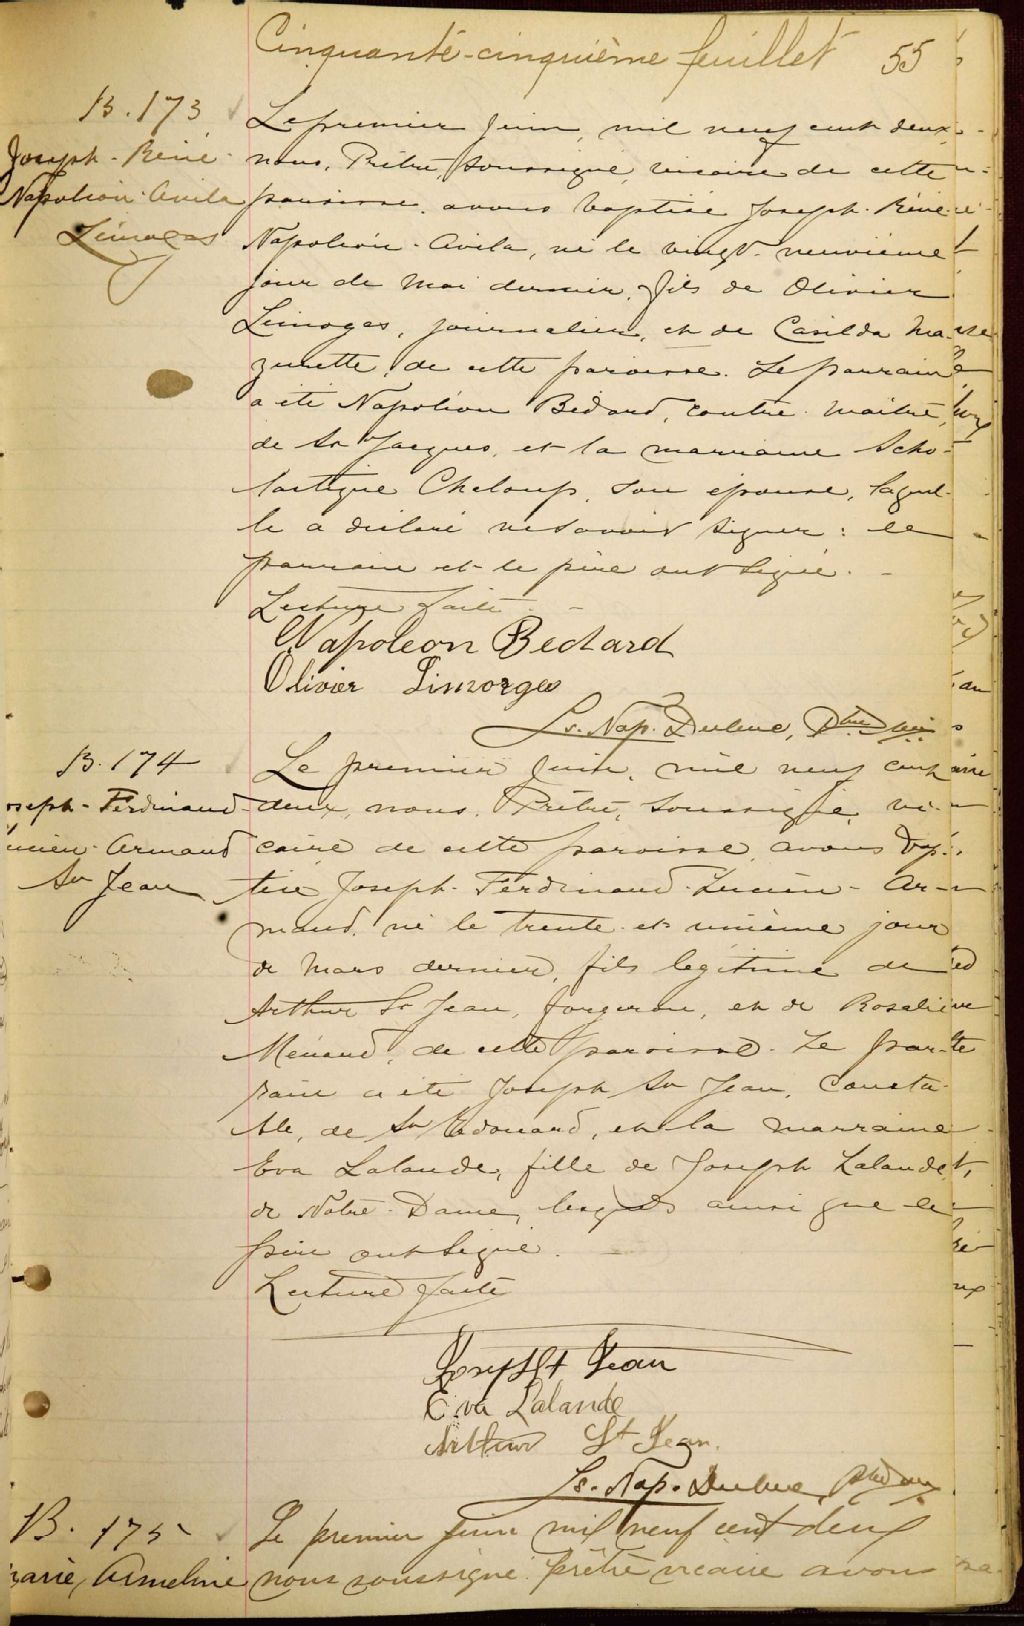 Cinquante-cinquième feuillet 55
B. 173
Joseph-Réné-
Napoléon-Avila
Limoges
Le premier Juin, mil neuf cent deux,
nous, Prêtre, soussigné, vicaire de cette
paroisse, avons baptisé Joseph-Réné-
Napoléon-Avila, né le vingt-neuvième
jour de Mai dernier, fils de Olivier
Limoges, journalier, et de Casilda Ma-
zurette, de cette paroisse. Le parrain
a été Napoléon Bédard, contre-maître,
de St Jacques, et la marraine Scho-
lastique Cheloup, son épouse, laquel-
le a déclaré ne savoir signer: le
parrain et le père ont signé.
Lecture faite.
Napoleon Bedard
Olivier Limorges
Ls. Nap. Dubuc, Ptre vic.
B. 174
Joseph-Ferdinand-
Lucien-Armand
St Jean
Le premier Juin, mil neuf cent
deux, nous, Prêtre, soussigné, vi-
caire de cette paroisse, avons bap-
tisé Joseph-Ferdinand-Lucien-Ar-
mand, né le trente et unième jour
de Mars dernier, fils légitime de
Arthur St Jean, forgeron, et de Rosalie
Ménard, de cette paroisse. Le par-
rain a été Joseph St Jean, Consta-
ble, de St Edouard, et la marraine
Eva Lalande, fille de Joseph Lalande,
de Notre-Dame, lesquels ainsi que le
père ont signé.
Lecture faite
Joseph St Jean
Eva Lalande
Arthur St Jean.
Ls. Nap. Dubuc, Ptre vic
B. 175
Marie, Armeline
Le premier juin mil neuf cent deux
nous soussigné prêtre vicaire avons